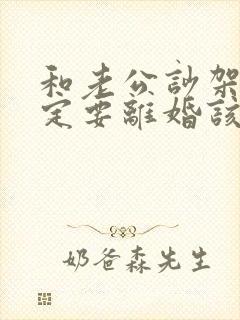 和老公訃架
定要離婚該
奶爸森先生